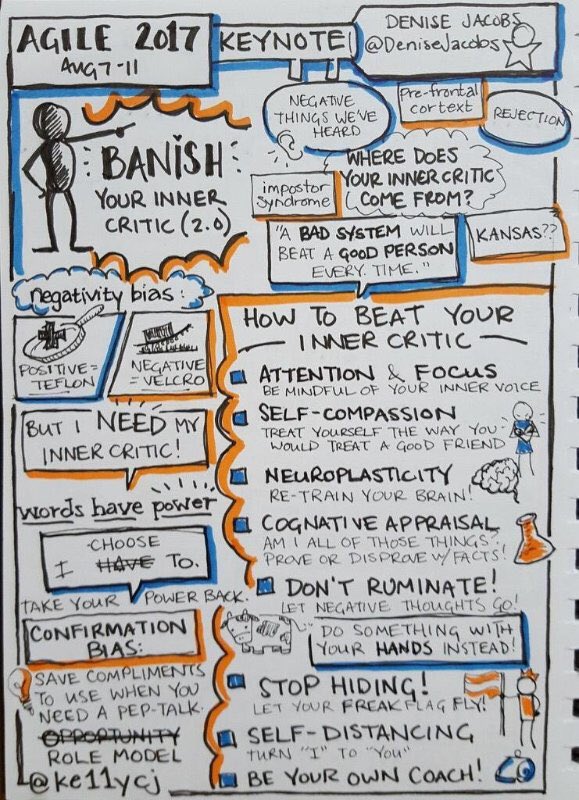 AGILE 2017
AUG 7-11
KEYNOTE!
DENISE JACOBS
@DeniseJacobs
BANISH
YOUR INNER
CRITIC (2.0)
NEGATIVE
THINGS WE'VE
HEARD
Pre-frontal
cortext
REJECTION
impostor
syndrome
WHERE DOES
YOUR INNER CRITIC
COME FROM?
"A BAD SYSTEM WILL
BEAT A GOOD PERSON
EVERY TIME."
KANSAS??
negativity bias:
POSITIVE =
TEFLON
NEGATIVE
= VELCRO
BUT I NEED MY
INNER CRITIC!
words have power
CHOOSE
I HAVE TO.
TAKE YOUR POWER BACK.
CONFIRMATION
BIAS:
SAVE COMPLIMENTS
TO USE WHEN YOU
NEED A PEP-TALK.
OPPORTUNITY
ROLE MODEL
@ke11ycj
HOW TO BEAT YOUR
INNER CRITIC
ATTENTION & FOCUS
BE MINDFUL OF YOUR INNER VOICE
SELF-COMPASSION
TREAT YOURSELF THE WAY YOU
WOULD TREAT A GOOD FRIEND
NEUROPLASTICITY
RE-TRAIN YOUR BRAIN!
COGNATIVE APPRAISAL
AM I ALL OF THOSE THINGS?
PROVE OR DISPROVE W/ FACTS!
DON'T RUMINATE!
LET NEGATIVE THOUGHTS GO!
DO SOMETHING WITH
YOUR HANDS INSTEAD!
STOP HIDING!
LET YOUR FREAK FLAG FLY!
SELF-DISTANCING
TURN "I" TO "YOU"
BE YOUR OWN COACH!